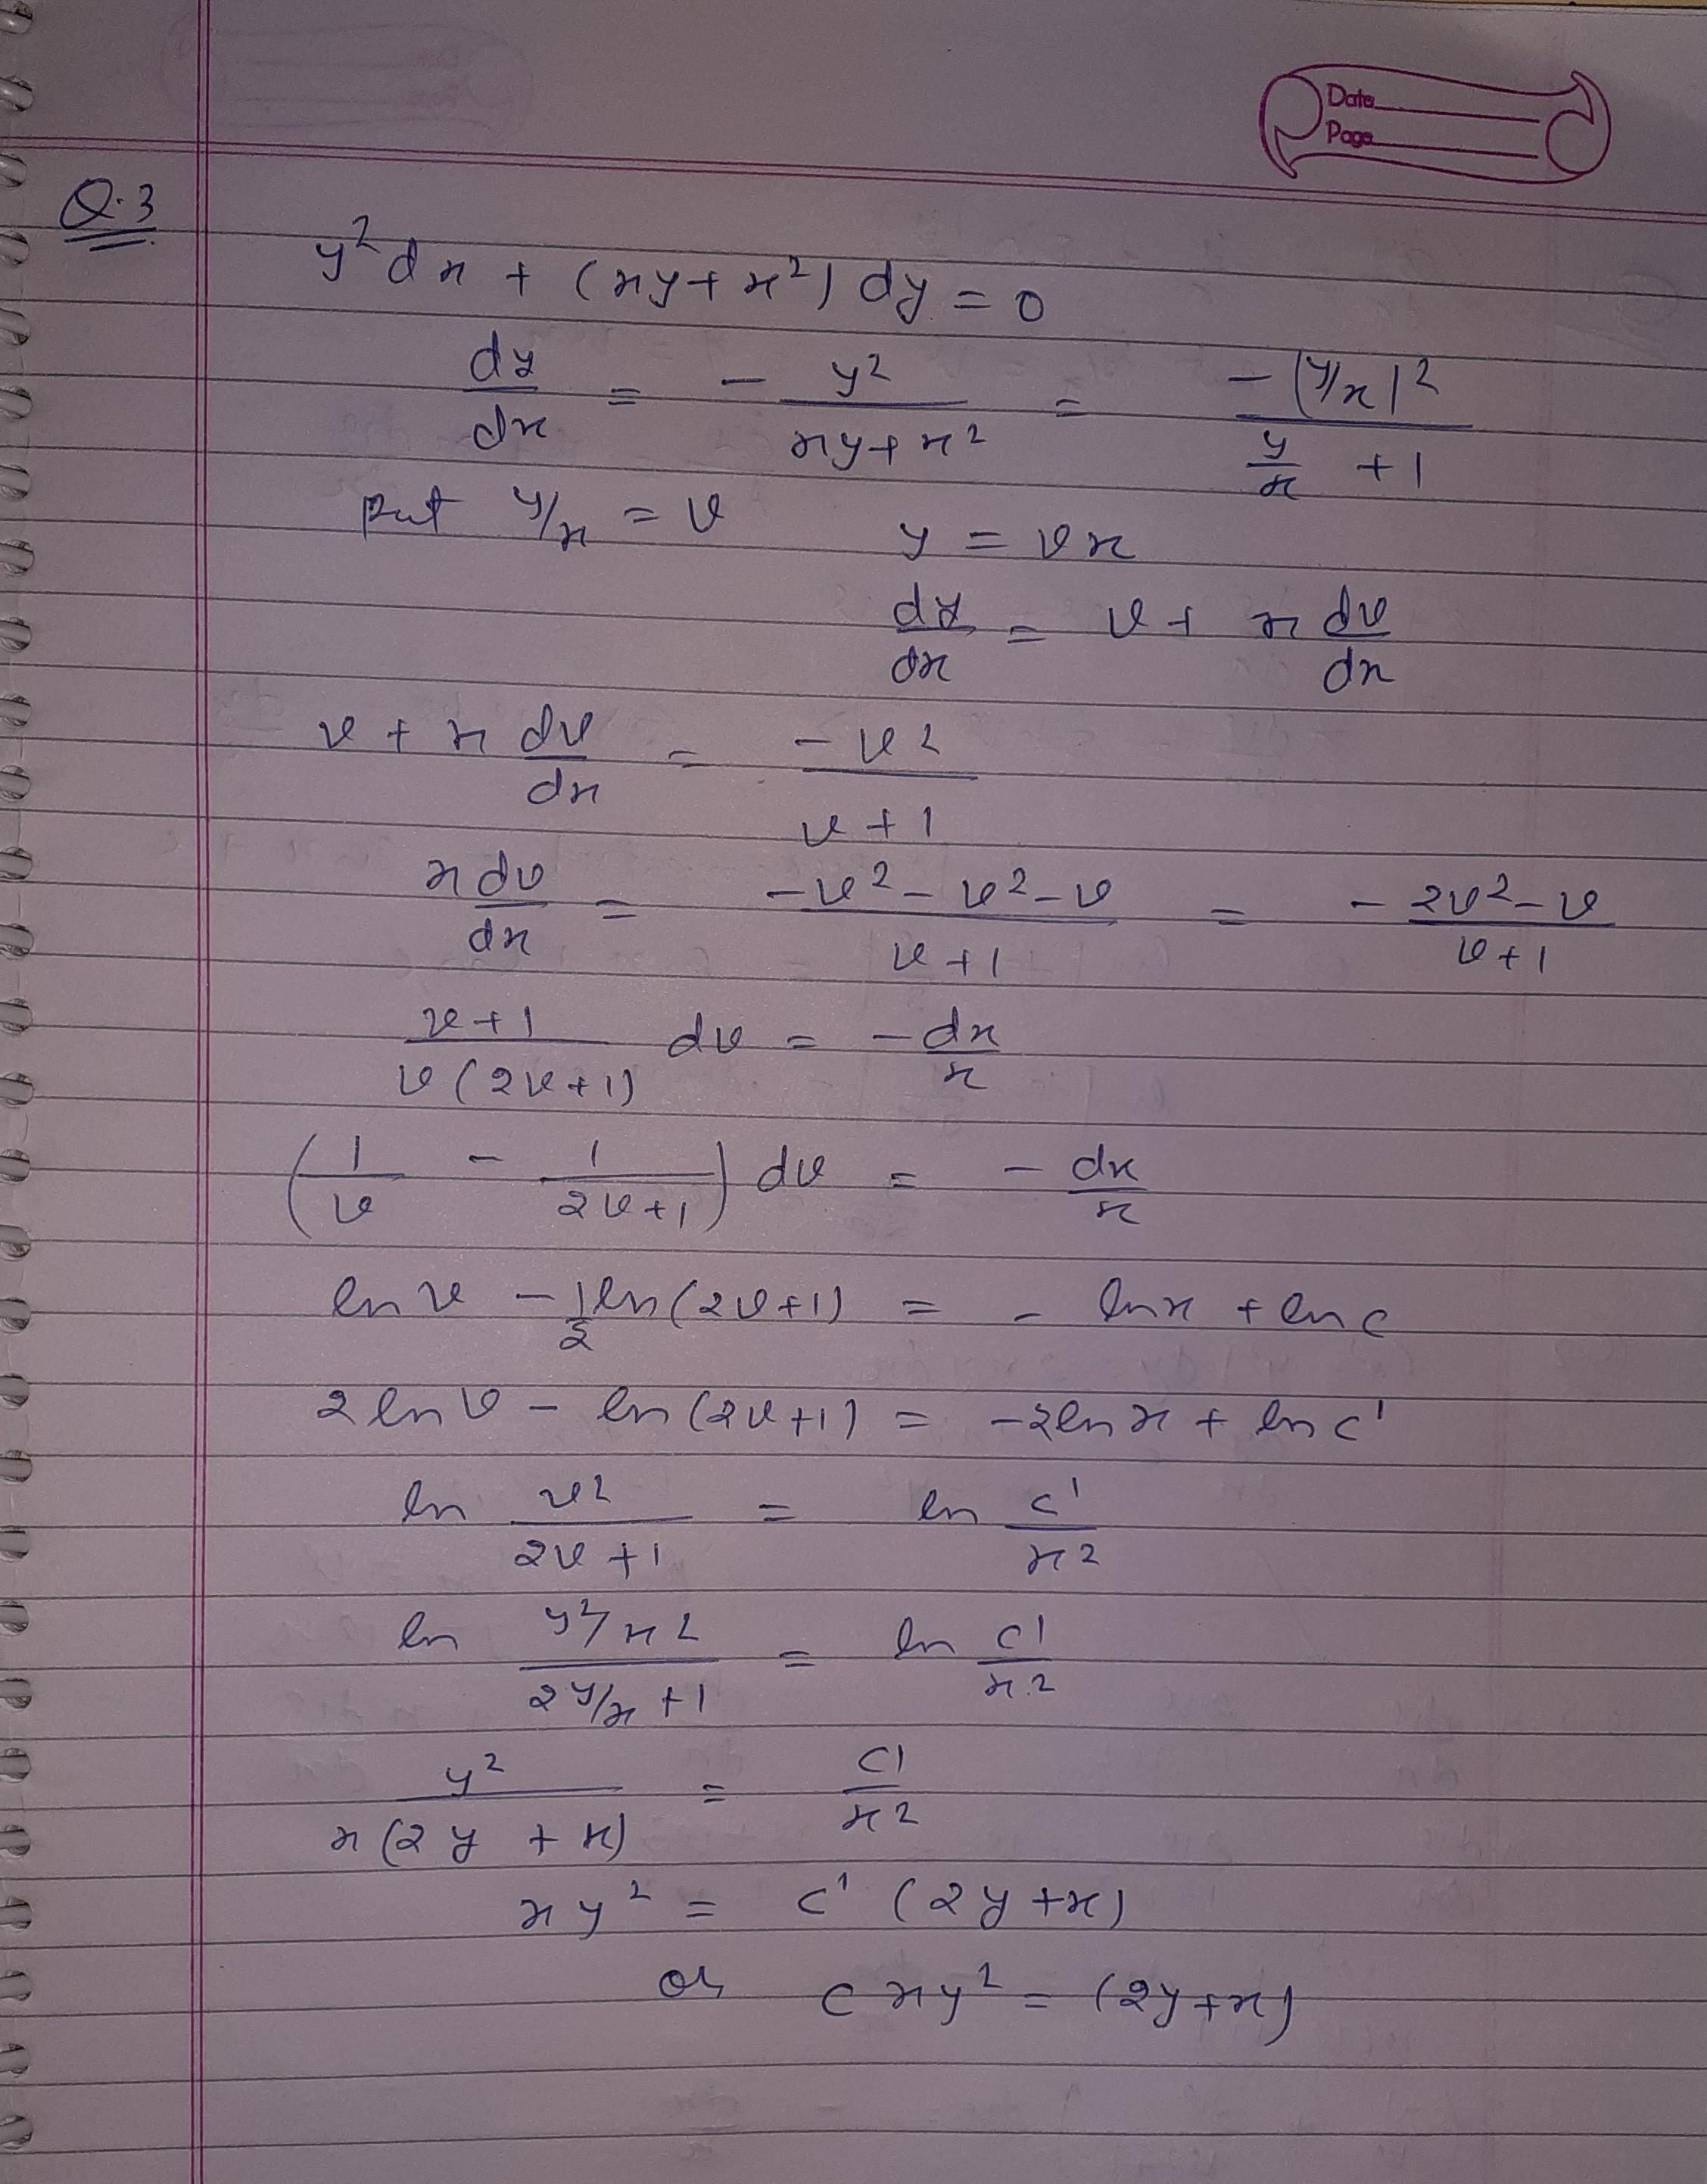 Date
Page
Q.3
y² dx + (xy + x²) dy = 0
dy/dx = - y²/(xy + x²) = -(y/x)²/(y/x + 1)
put y/x = v y = vx
dy/dx = v + x dv/dx
v + x dv/dx = -v²/(v + 1)
x dv/dx = (-v² - v² - v)/(v + 1) = (-2v² - v)/(v + 1)
(v + 1)/(v(2v + 1)) dv = -dx/x
(1/v - 1/(2v + 1)) dv = -dx/x
ln v - 1/2 ln(2v + 1) = - ln x + ln c
2 ln v - ln(2v + 1) = -2 ln x + ln c'
ln v²/(2v + 1) = ln c'/x²
ln (y²/x²)/(2y/x + 1) = ln c'/x²
y²/(x(2y + x)) = c'/x²
xy² = c'(2y + x)
or cxy² = (2y + x)